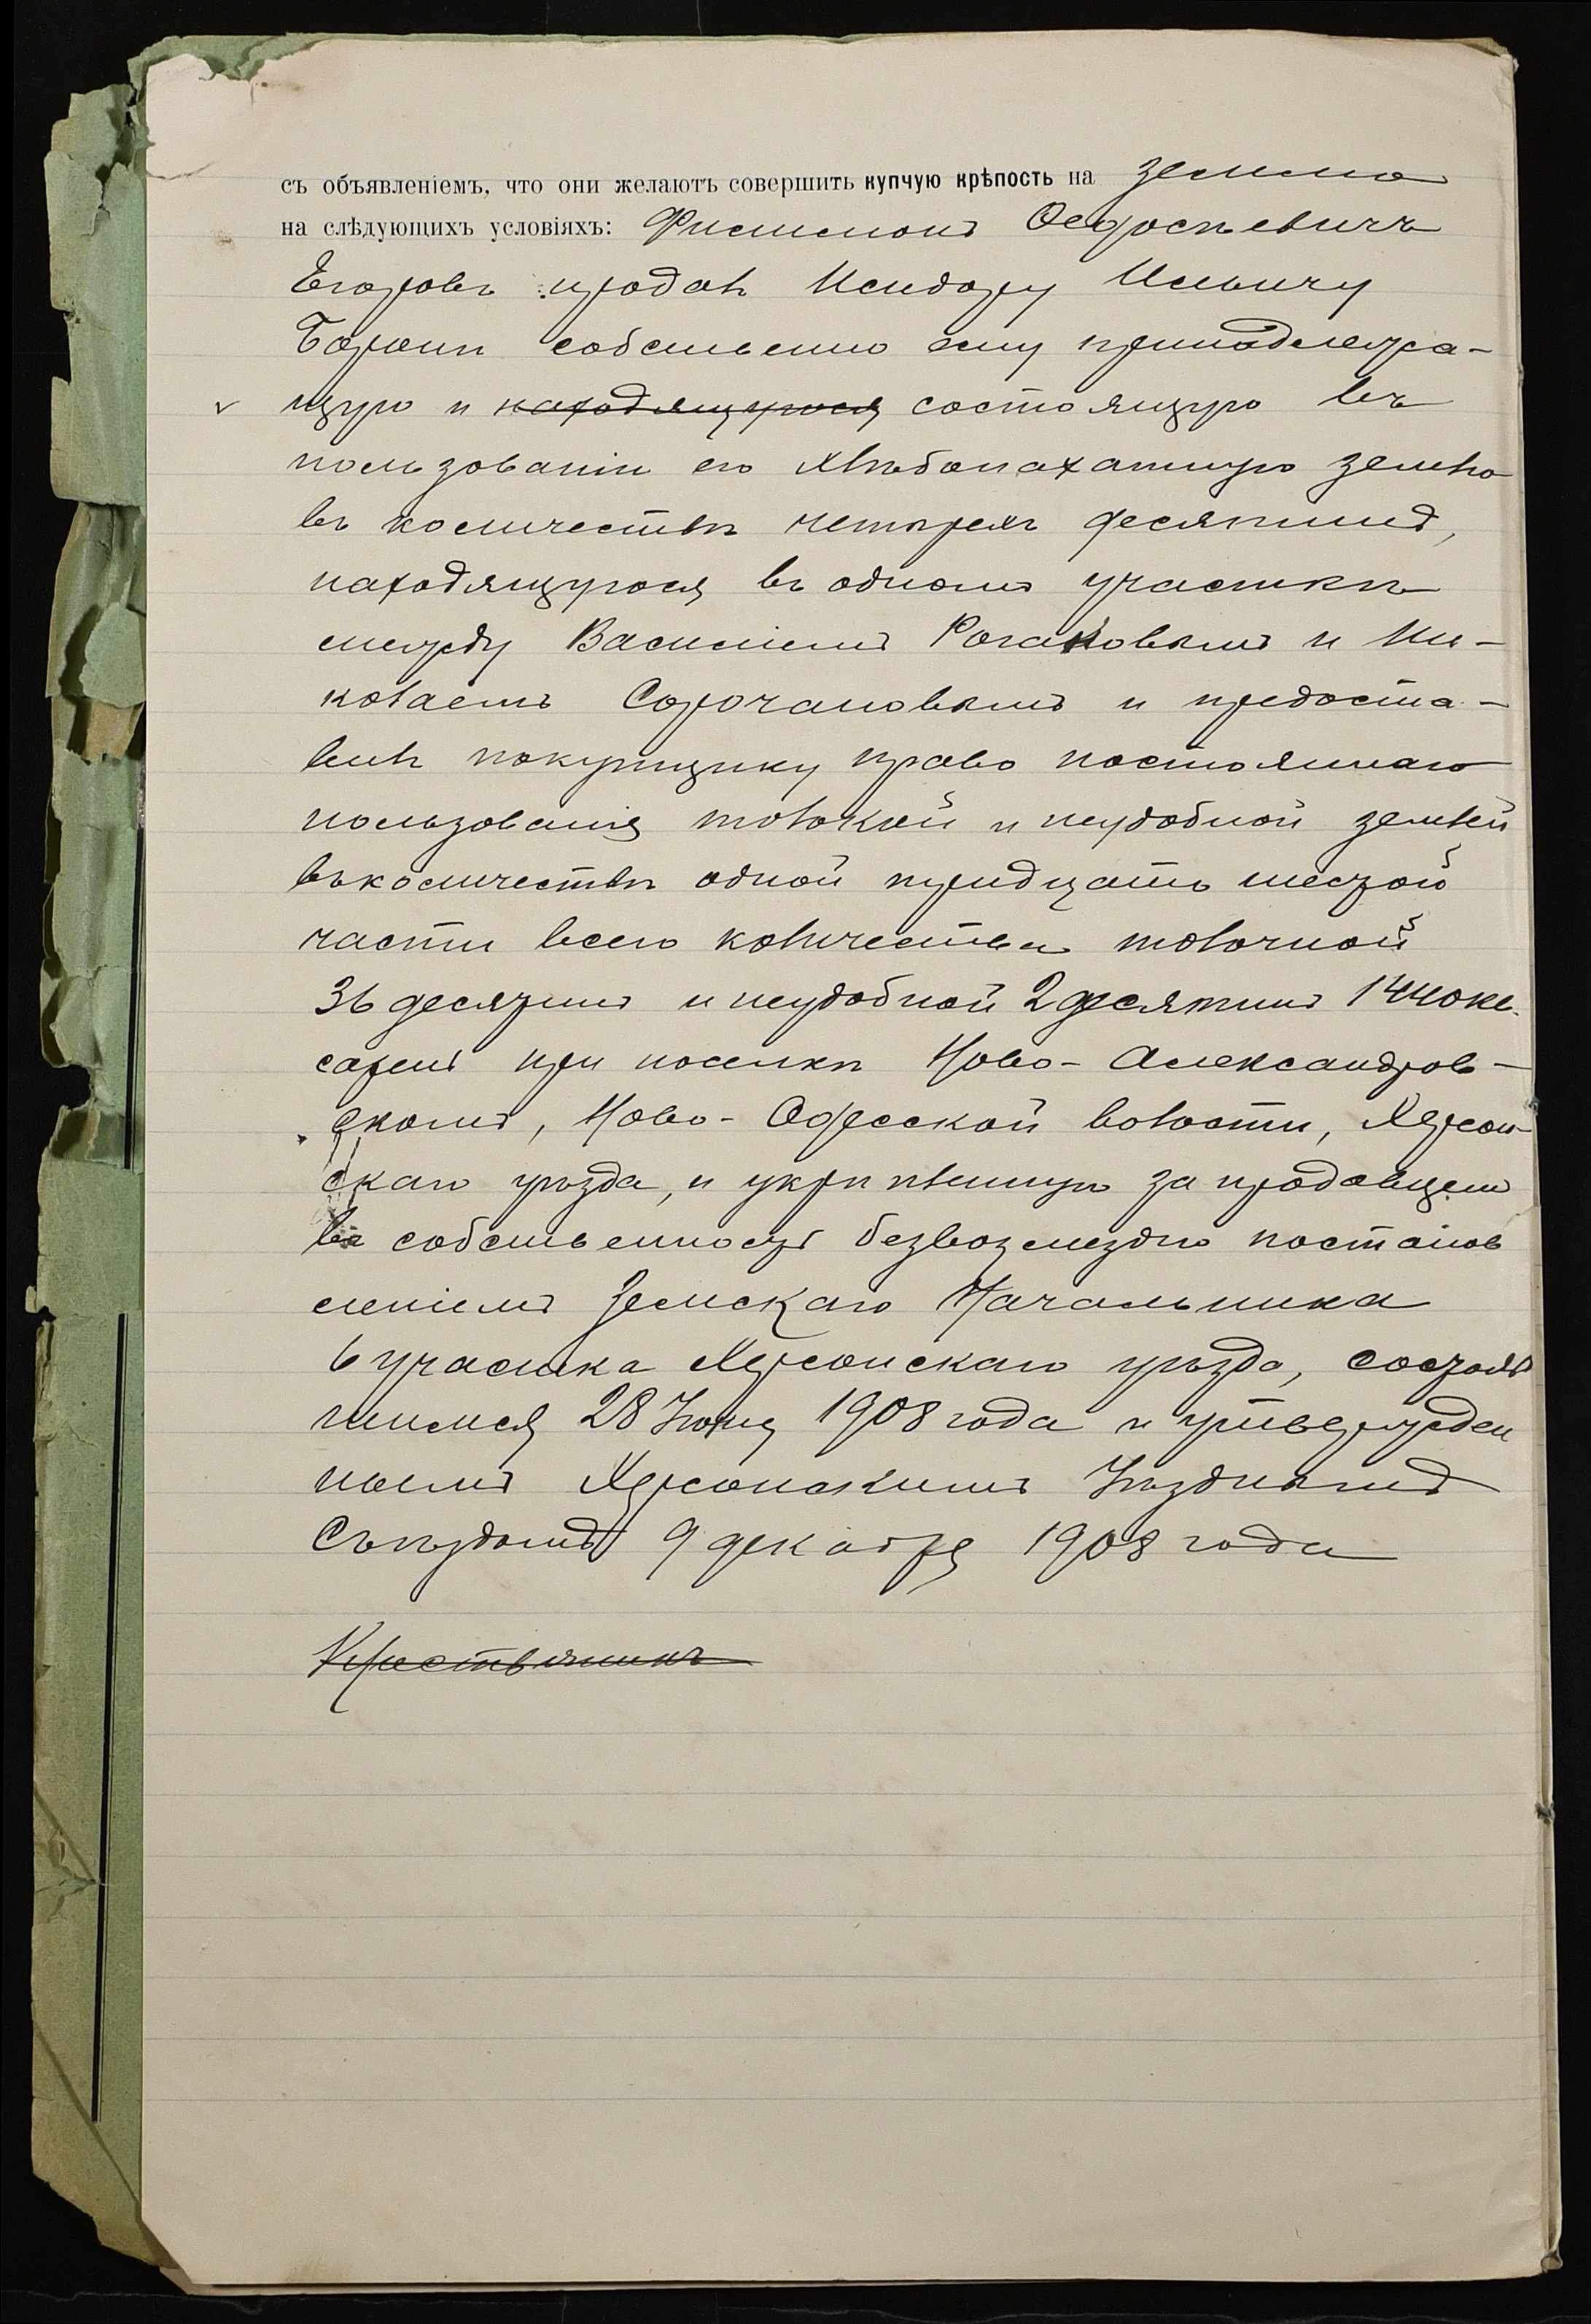 съ объявленіемъ, что они желаютъ совершить купчую крѣпость на землю
на слѣдующихъ условіяхъ: Филимонъ Оедосѣевичъ
Егоровъ продалъ Исидору Ильичу
собственно ему принадлежа-
щую и находящуюся состоящую въ
пользованіи его хлѣбопахатную землю
въ количествѣ четырехъ десятинъ,
находящуюся въ одномъ участкѣ
между Василіемъ Рогаковымъ и Ни-
колаемъ Сорочановымъ и предоста-
вилъ покупщику право постояннаго
пользованія толокой и неудобной землей
въ количествѣ одной тридцать шестой
части всего количества толочной
36 десятинъ и неудобной 2 десятинъ 1440 кв.
сажень при поселкѣ Ново-Александров-
скомъ, Ново-Одесской волости, Херсон-
скаго уѣзда, и укрѣпленную за продавцемъ
въ собственность безвозмездно постанов
леніемъ Земскаго Начальника
6 участка Херсонскаго уѣзда, состояв
шимся 28 Іюня 1908 года и утвержден
нымъ Херсонскимъ Уѣзднымъ
Съѣздомъ 9 декабря 1908 года
Крестьянинъ